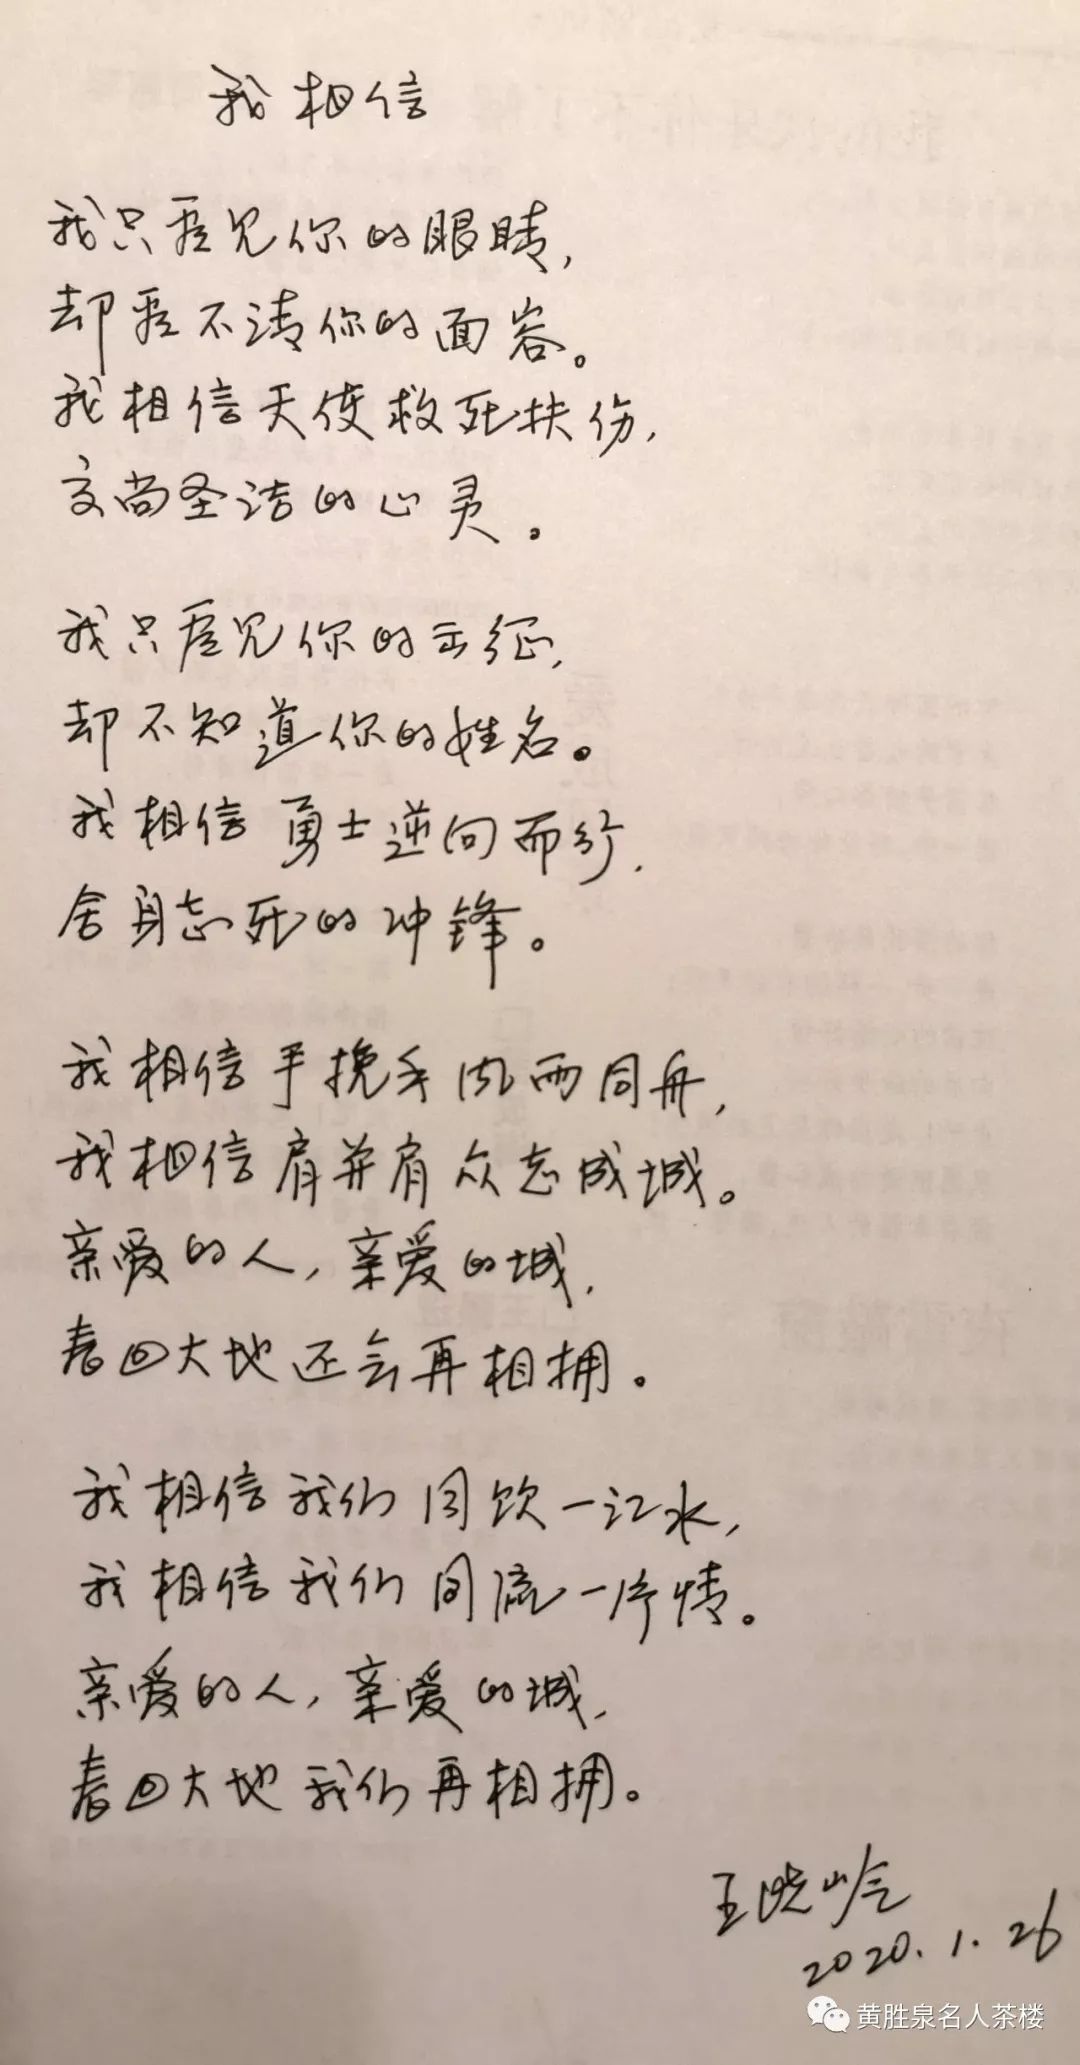 我相信
我只看见你的眼睛，
却看不清你的面容。
我相信天使救死扶伤，
高尚圣洁的心灵。
我只看见你的出征，
却不知道你的姓名。
我相信勇士逆向而行，
舍身忘死的冲锋。
我相信手挽手风雨同舟，
我相信肩并肩众志成城。
亲爱的人，亲爱的城，
春回大地还会再相拥。
我相信我们同饮一江水，
我相信我们同流一片情。
亲爱的人，亲爱的城，
春回大地我们再相拥。
王晓岭
2020.1.26
黄胜泉名人茶楼